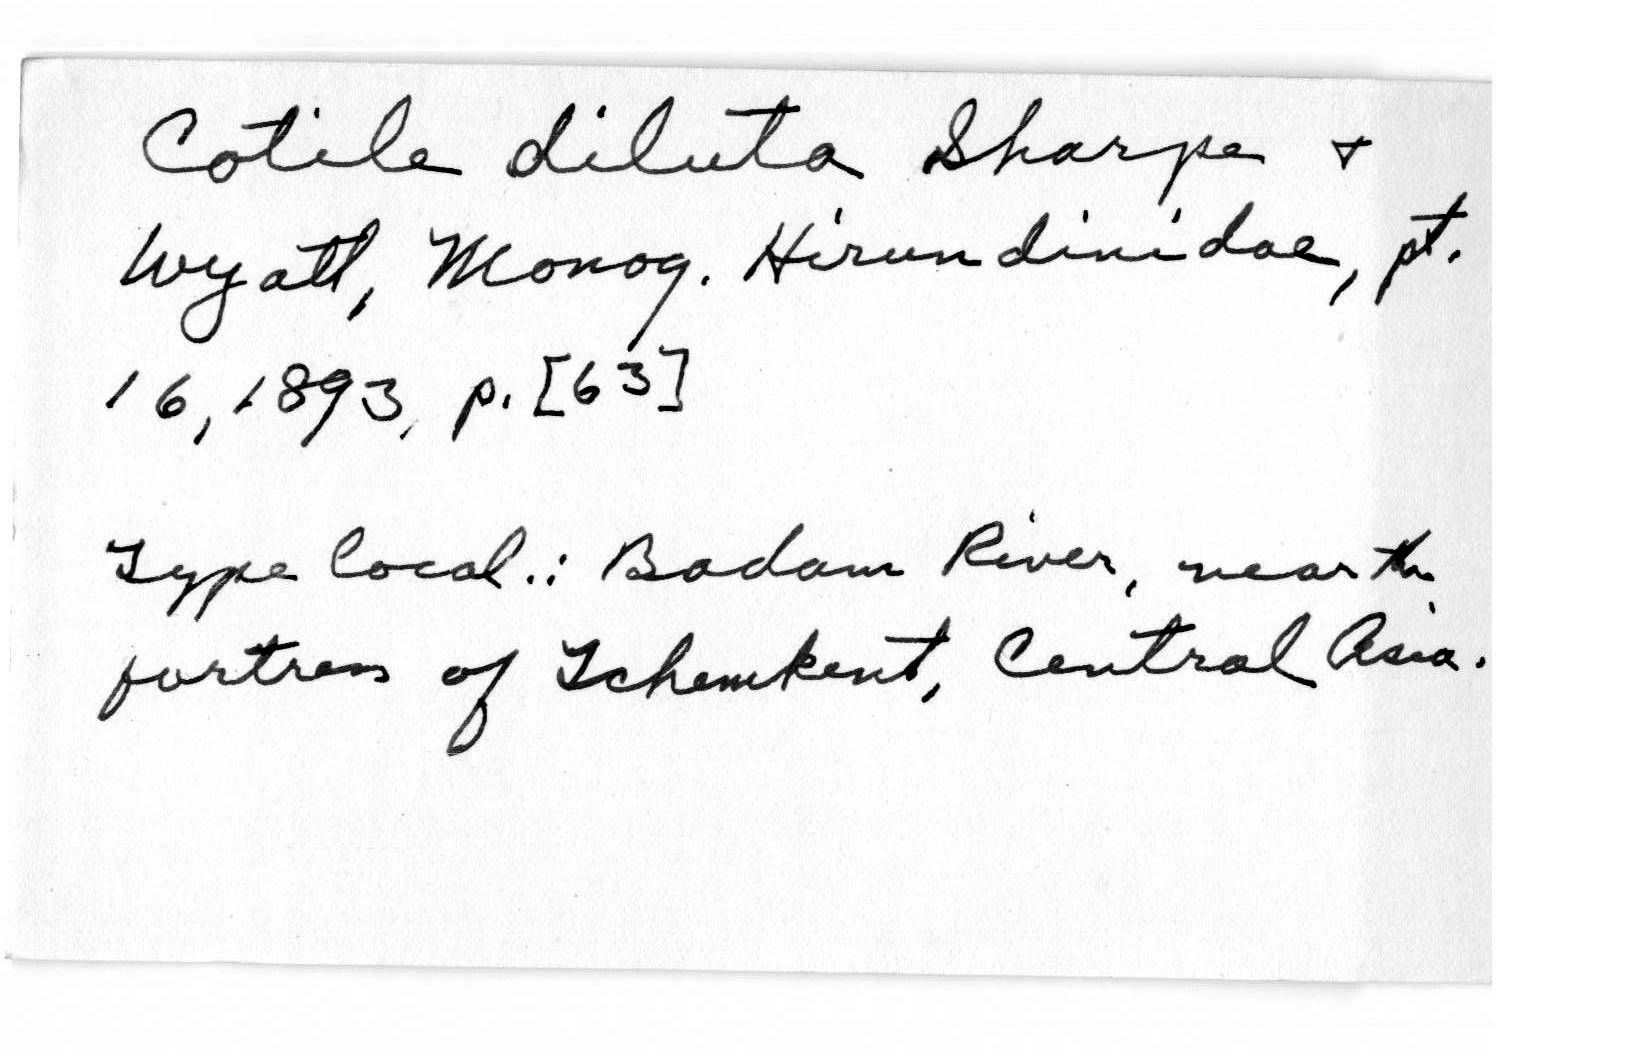 Cotile diluta Sharpe +
Wyatt, Monog. Hirundinidae, pt.
16, 1893, p. [63]
Type local.: Badam River, near the
fortress of Tchemkent, Central Asia.